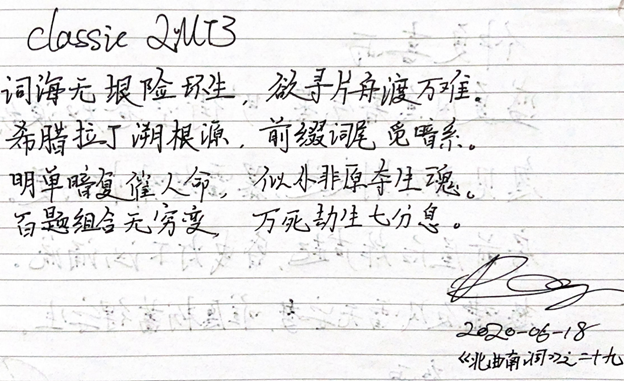 classic 2MT3
词海无垠险环生，欲寻片舟渡万难。
希腊拉丁溯根源，前缀词尾觅暗系。
明单暗复催人命，似小非原夺生魂。
百题组合无穷变，万死劫生七分息。
2020-06-18
《北曲南词》之二十九